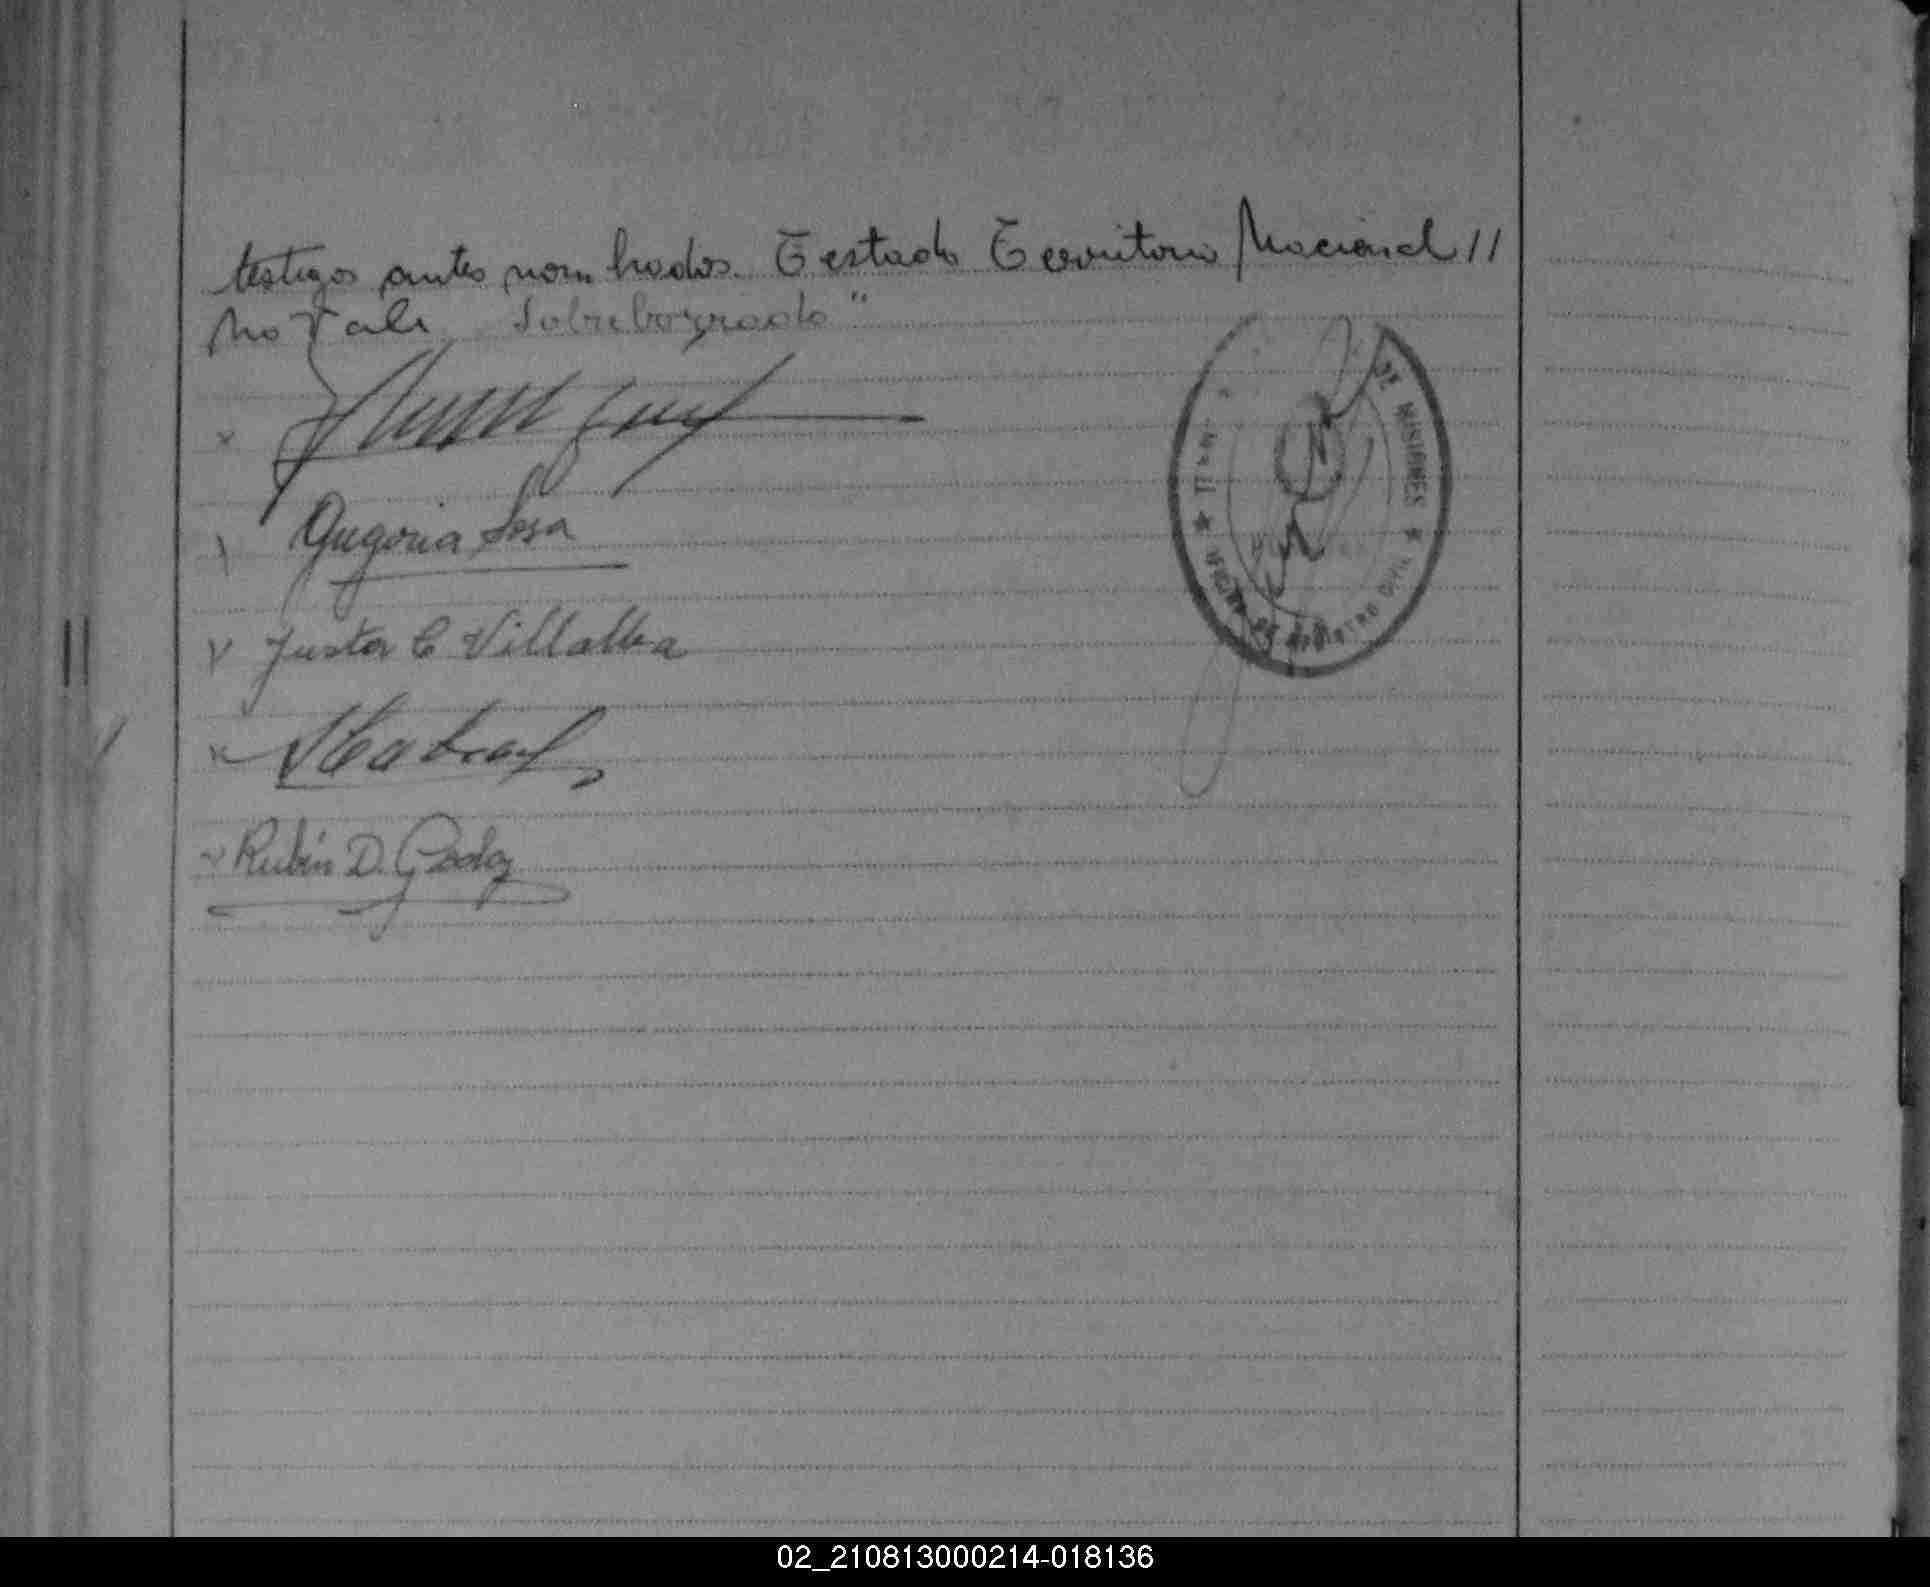 testigos antes nombrados. Testado Territorio Nacional //
No Vale Sobreborrado"
Gregoria Sosa
Justa C Villalba
Rubén D. Godoy
DE MISIONES ★
OFICINA DE REGISTRO CIVIL ★
02_210813000214-018136